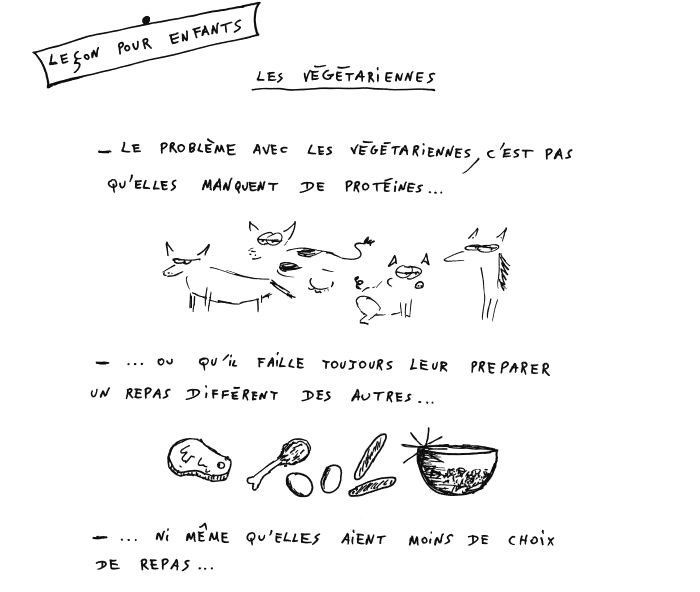 LEÇON POUR ENFANTS
LES VĒGĒTARiENNES
– LE PROBLÈME AVEC LES VĒGĒTARiENNES, C'EST PAS
QU'ELLES MANQUENT DE PROTÉiNES...
– ... OU QU'iL FAiLLE TOUJOURS LEUR PREPARER
UN REPAS DiFFĒRENT DES AUTRES...
– ... Ni MÊME QU'ELLES AiENT MOiNS DE CHOiX
DE REPAS...